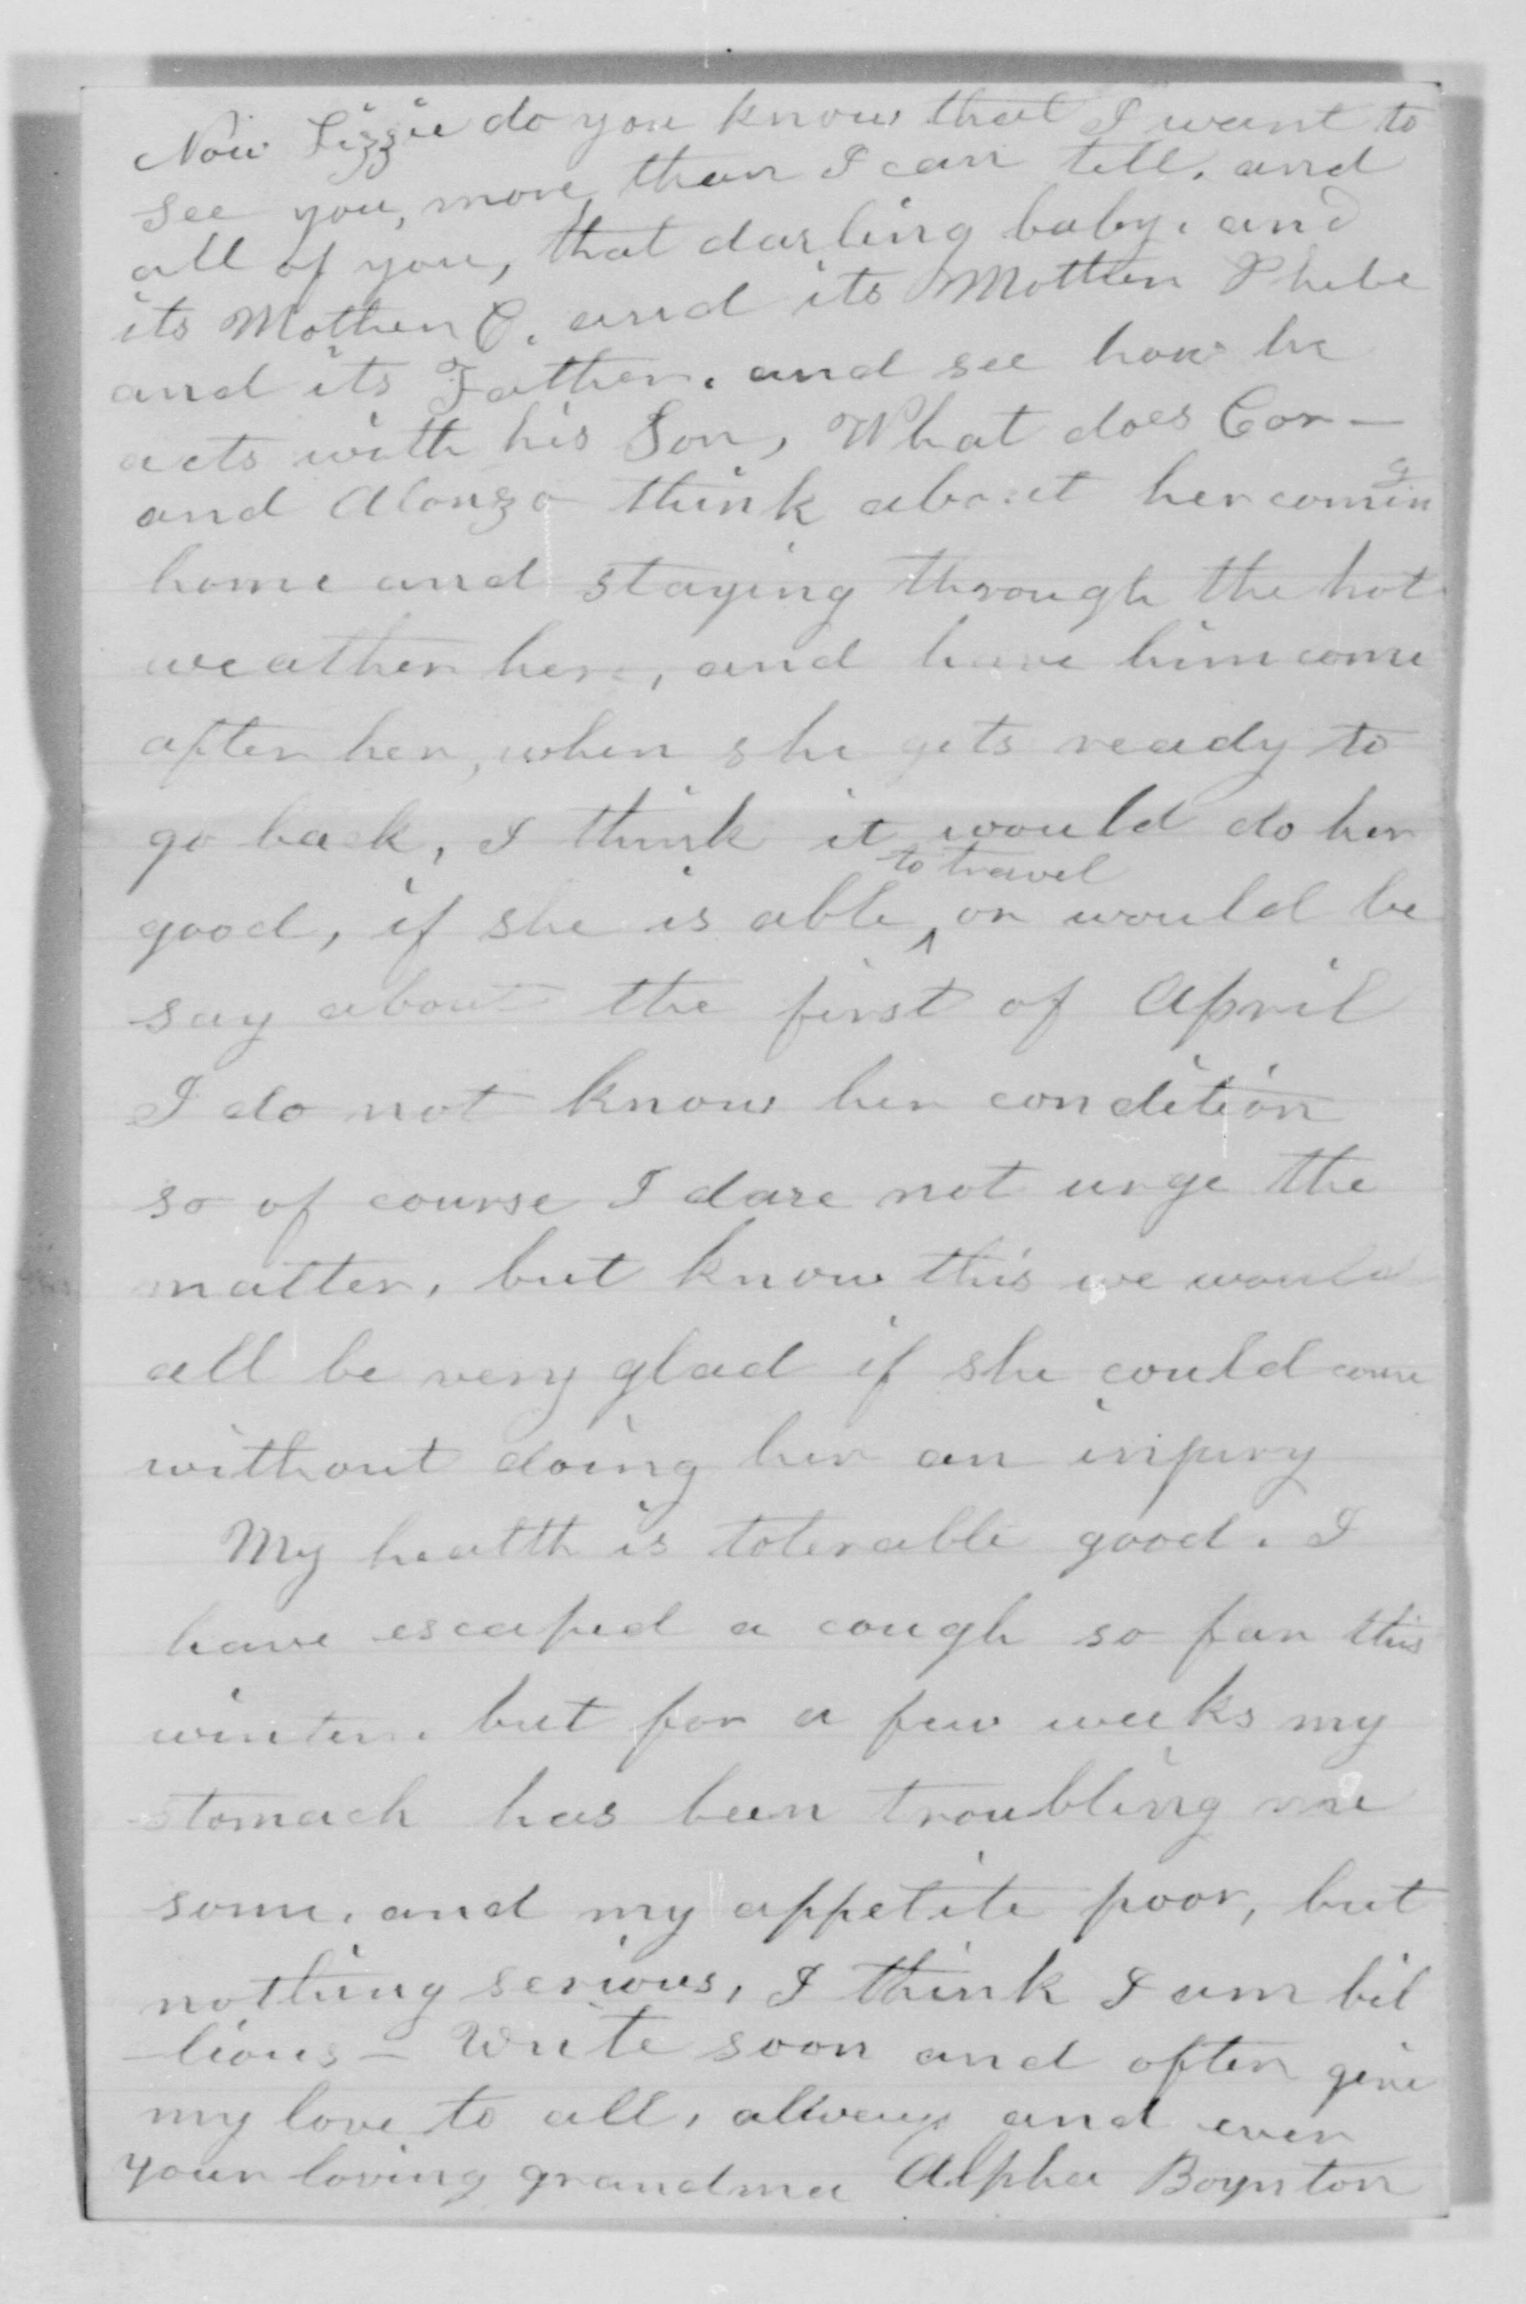 Now Lizzie do you know that I want to
see you, more, than I can tell, and
all of you, that darling baby, and
its Mother C. and its Mother Phebe
and its Father, and see how he
acts with his Son, What does Cor-
and Alonzo think about her coming
home and staying through the hot
weather here, and have him come
after her, when she gets ready to
go back, I think it would do her
to travel
good, if she is able ^ or would be
say about the first of April
I do not know her condition
so of course I dare not urge the
matter, but know this we would
all be very glad if she could come
without doing her an injury
My health is tolerable good. I
have escaped a cough so far this
winter. but for a few weeks my
stomach has been troubling me
some, and my appetite poor, but
nothing serious, I think I am bil
-lious - Write soon and often give
my love to all, always and ever
your loving grandma Alpha Boynton